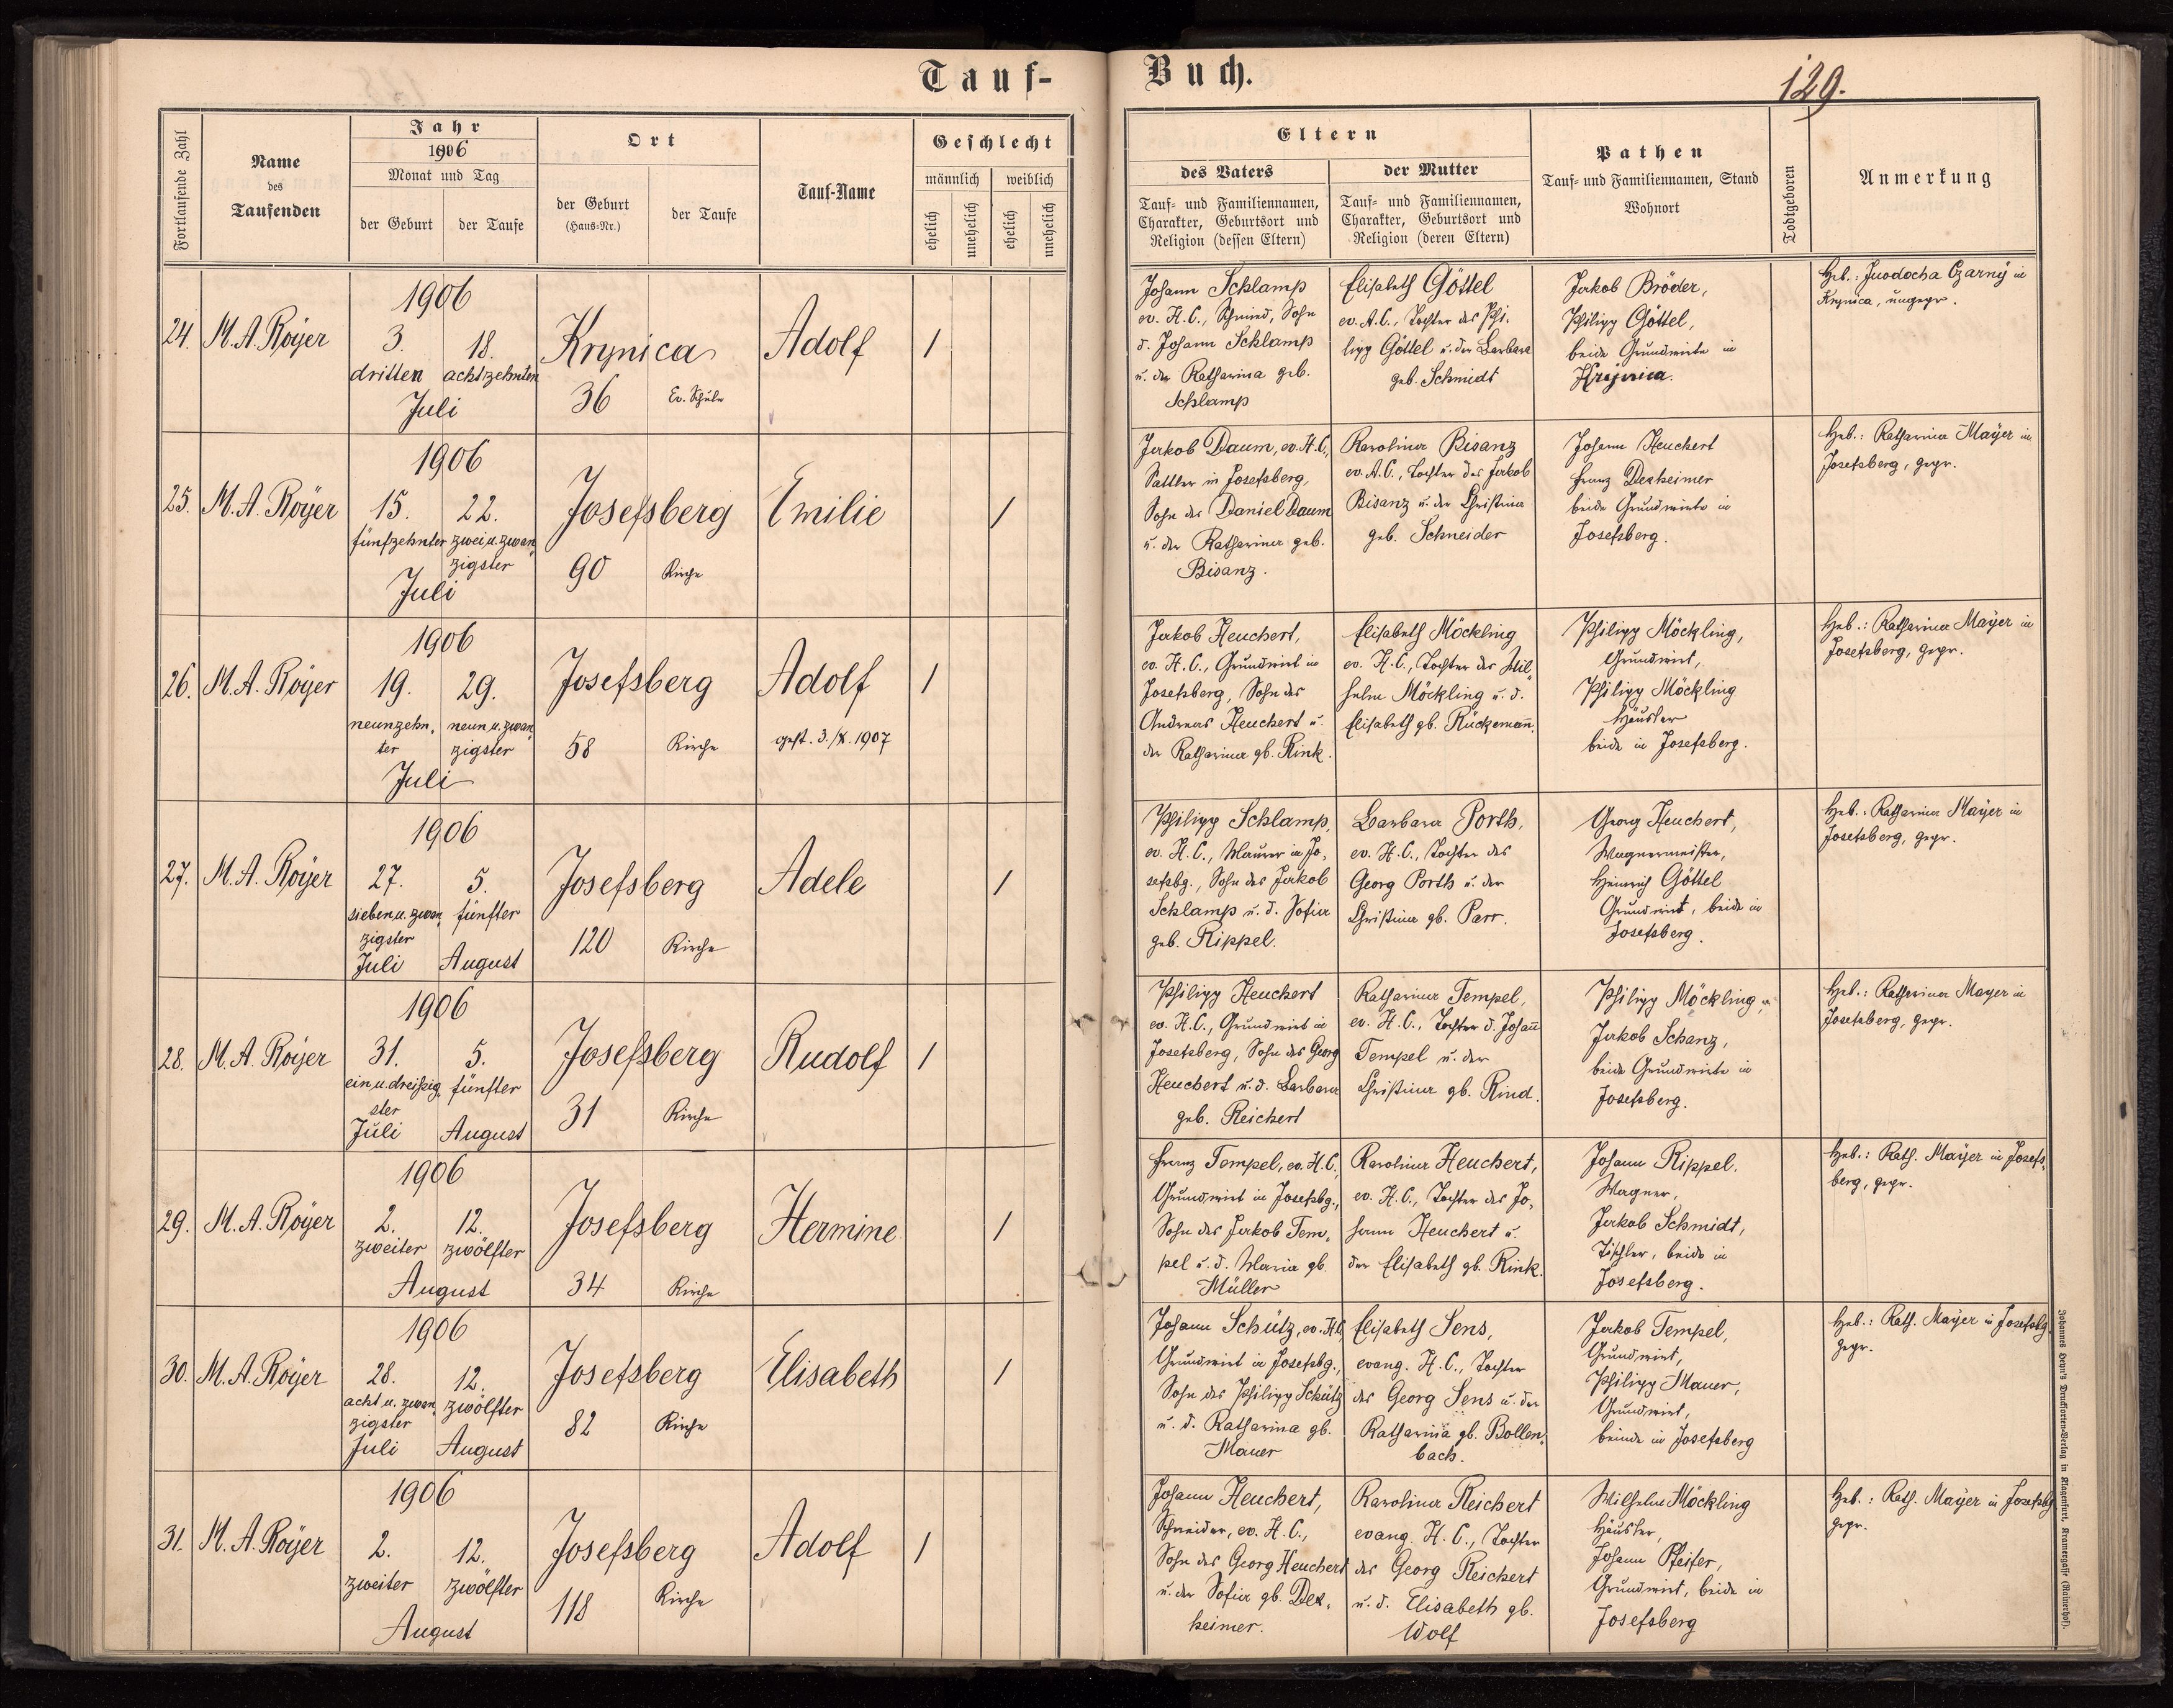 Tauf-
Buch.
129.
Fortlaufende Zahl
Name
des
Taufenden
Jahr
1906
Monat und Tag
der Geburt
der Taufe
Ort
der Geburt
(Haus-Nr.)
der Taufe
Tauf-Name
Geschlecht
männlich
weiblich
ehelich
unehelich
ehelich
unehelich
Eltern
des Vaters
Tauf- und Familiennamen,
Charakter, Geburtsort und
Religion (dessen Eltern)
der Mutter
Tauf- und Familiennamen,
Charakter, Geburtsort und
Religion (deren Eltern)
Pathen
Tauf- und Familiennamen, Stand
Wohnort
Todtgeboren
Anmerkung
24.
M. A. Royer
1906
3.
dritten
18.
achtzehnten
Juli
Krynica
36
Ev. Schule
Adolf
1
Johann Schlamp
ev. H. C., Schmied, Sohn
d. Johann Schlamp
u. der Katharina geb.
Schlamp
Elisabeth Göttel
ev. A. C., Tochter des Phi-
lipp Göttel u. der Barbara
geb. Schmidt
Jakob Bröder,
Philipp Göttel,
beide Grundwirte in
Krynica.
Heb.: Juodocha Czarny in
Krynica, ungepr.
25.
M. A. Royer
1906
15.
fünfzehnter
22.
zwei u. zwan
zigster
Juli
Josefsberg
90
Kirche
Emilie
1
Jakob Daum, ev. H. C.,
Sattler in Josefsberg,
Sohn des Daniel Daum
u. der Katharina geb.
Bisanz.
Karolina Bisanz
ev. A. C., Tochter des Jakob
Bisanz u. der Christina
geb. Schneider
Johann Heuchert
Franz Dexheimer
beide Grundwirte in
Josefsberg.
Heb.: Katharina Mayer in
Josefsberg, gepr.
26.
M. A. Royer
1906
19.
neunzehn„
ter
29.
neun u. zwan„
zigster
Juli
Josefsberg
58
Kirche
Adolf
gest. 3./X. 1907
1
Jakob Heuchert,
ev. H. C., Grundwirt in
Josefsberg, Sohn des
Andreas Heuchert u.
der Katharina gb. Rink.
Elisabeth Möckling
ev. H. C., Tochter des Wil„
helm Möckling u. d.
Elisabeth gb. Rückemañ.
Philipp Möckling,
Grundwirt,
Philipp Möckling
Häusler
beide in Josefsberg.
Heb.: Katharina Mayer in
Josefsberg, gepr.
27.
M. A. Royer
1906
27.
sieben u. zwan„
zigster
Juli
5.
fünfter
August
Josefsberg
120
Kirche
Adele
1
Philipp Schlamp,
ev. H. C., Maurer in Jo„
sefsbg., Sohn des Jakob
Schlamp u. d. Sofia
geb. Rippel.
Barbara Porth,
ev. H. C., Tochter des
Georg Porth u. der
Christina gb. Parr.
Georg Heuchert,
Wagnermeister,
Heinrich Göttel
Grundwirt, beide in
Josefsberg.
Heb.: Katharina Mayer in
Josefsberg, gepr.
28.
M. A. Royer
1906
31.
ein u. dreißig„
ster
Juli
5.
fünfter
August
Josefsberg
31
Kirche
Rudolf
1
Philipp Heuchert
ev. H. C., Grundwirt in
Josefsberg, Sohn des Georg
Heuchert u. d. Barbara
geb. Reichert
Katharina Tempel,
ev. H. C., Tochter d. Johañ
Tempel u. der
Christina gb. Rind.
Philipp Möckling u.
Jakob Schanz,
beide Grundwirte in
Josefsberg.
Heb.: Katharina Mayer in
Josefsberg, gepr.
29.
M. A. Royer
1906
2.
zweiter
12.
zwölfter
August
Josefsberg
34
Kirche
Hermine
1
Franz Tempel, ev. H. C.,
Grundwirt in Josefsbg.,
Sohn des Jakob Tem„
pel u. d. Maria gb.
Müller
Karolina Heuchert,
ev. H. C., Tochter des Jo„
hann Heuchert u.
der Elisabeth gb. Rink.
Johann Rippel,
Wagner,
Jakob Schmidt,
Tischler, beide in
Josefsberg.
Heb.: Kath. Mayer in Josefs„
berg, gepr.
30.
M. A. Royer
1906
28.
acht u. zwan„
zigster
Juli
12.
zwölfter
August
Josefsberg
82
Kirche
Elisabeth
1
Johann Schütz, ev. H. C.
Grundwirt in Josefsbg.,
Sohn des Philipp Schütz
u. d. Katharina gb.
Mauer
Elisabeth Sens,
evang. H. C., Tochter
des Georg Sens u. der
Katharina gb. Bollen„
bach.
Jakob Tempel,
Grundwirt,
Philipp Mauer,
Grundwirt,
beinde in Josefsberg
Heb.: Kath. Mayer in Josefsbg.
gepr.
31.
M. A. Royer
1906
2.
zweiter
12.
zwölfter
August
Josefsberg
118
Kirche
Adolf
1
Johann Heuchert,
Schneider, ev. H. C.,
Sohn des Georg Heuchert
u. der Sofia gb. Dex„
heimer.
Karolina Reichert
evang. H. C., Tochter
des Georg Reichert
u. d. Elisabeth gb.
Wolf
Wilhelm Möckling
Häusler,
Johann Pfeifer,
Grundwirt, beide in
Josefsberg
Heb.: Kath. Mayer in Josefsbg
gepr.
Johannes Heyn's Drucksorten-Verlag in Klagenfurt, Kramergasse (Rainerhof).